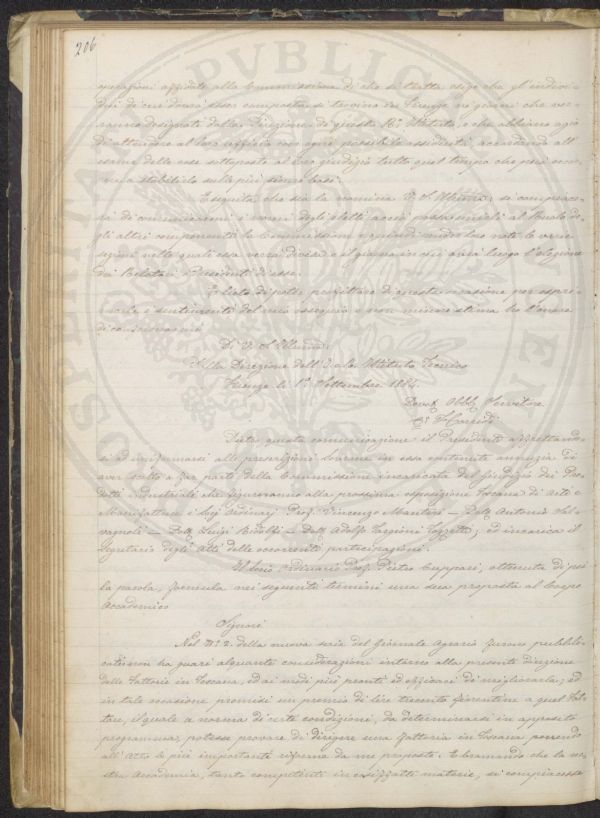 206
operazioni affidate alla Commissione di che si tratta esige che gl'indivi-
dui di cui dovrà esser composta si trovino in Firenze nei giorni che ver-
ranno designati dalla Direzione di questo R.º Istituto, e che abbiano agio
di attendere al loro ufficio con ogni possibile assiduità, accudendo all'
esame delle cose sottoposte al loro giudizio tutto quel tempo che può
stabilirlo sulle più sicure basi.
Eseguita che sia la nomina V. S. Illma si compiacerà
di comunicarmi i nomi degli eletti acciò possa unirli al Ruolo de-
gli altri componenti la Commissione, e quindi render loro note le varie
sezioni nelle quali essa verrà divisa e il giorno in cui avrà luogo l'elezione
dei Relatori e Presidenti di esse.
Ho lieto di poter profittare di questa occasione per espri-
merle i sentimenti del mio ossequio e non minore stima ho l'onore
di confermarmi
Di V. S. Illma
Dalla Direzione dell'I. e R. Istituto Tecnico
Firenze li 1º Settembre 1854.
Devot Obbl Servitore
F. Corridi
Dietro questa comunicazione il Presidente affrettando-
si ad uniformarsi alle prescrizioni Sovrane in essa contenute annuzia di
aver scelto a far parte della Commissione incaricata del Giudizio dei Pro-
dotti industriali che figureranno alla prossima esposizione Toscana di Arti e
Manifatture i Sigi Ordinarj Prof. Vincenzo Manteri — Dott. Antonio Sal-
vagnoli — Dott. Luigi Ridolfi — Dott. Adolfo Targioni Tozzetti; ed incarica il
Segretario degli Atti delle occorrenti partecipazioni.
Il Socio Ordinario Prof. Pietro Cuppari, ottenuta di poi
la parola, formula nei seguenti termini una sua proposta al Corpo
Accademico
Signori
Nel Nº 2. della nuova serie del Giornale Agrario furono pubbli-
cate non ha guari alquante considerazioni intorno alla presente direzione
delle Fattorie in Toscana, ed ai modi più pronti ed efficaci di migliorarla; ed
in tale occasione promisi un premio di lire trecento fiorentine a quel Fat-
tore, il quale a norma di certe condizioni, da determinarsi in apposito
programma, potesse provare di dirigere una fattoria in Toscana ponendo
all'atto le più importanti riforme da me proposte. E bramando che la no-
stra Accademia, tanto competente in cosiffatte materie, si compiacesse